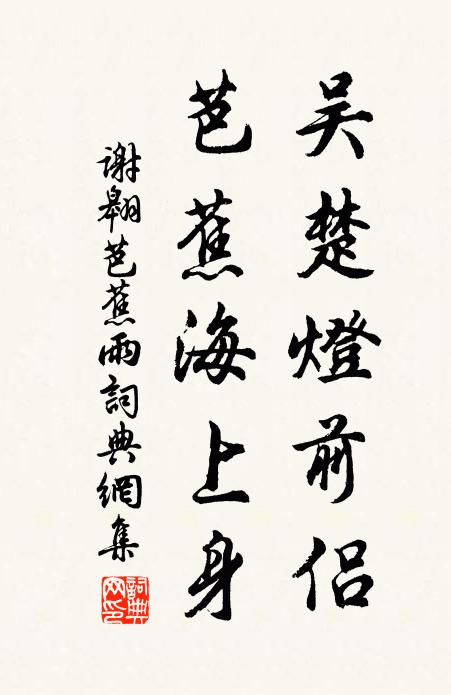 吴楚燈前侣
芭蕉海上身
謝翱芭蕉雨詞典網集
詞典網印